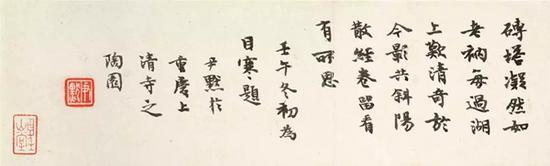 磚塔凝然如
老衲每過湖
上歎清奇於
今影共斜陽
散經卷留看
有所思
壬午冬初為
目寒題
尹默於
重慶上
清寺之
陶園
尹默